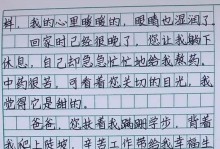 鲜，我的心里暖暖的，眼睛也湿润了
回家时已经很晚了，您让我躺下
休息，自己却急急忙忙地给我熬药。
中药很苦，可看着您关切的目光，我
觉得它是甜的。
爸爸，您扶着我蹒跚学步，背着
我爬上陡坡，辛苦工作带给我幸福生